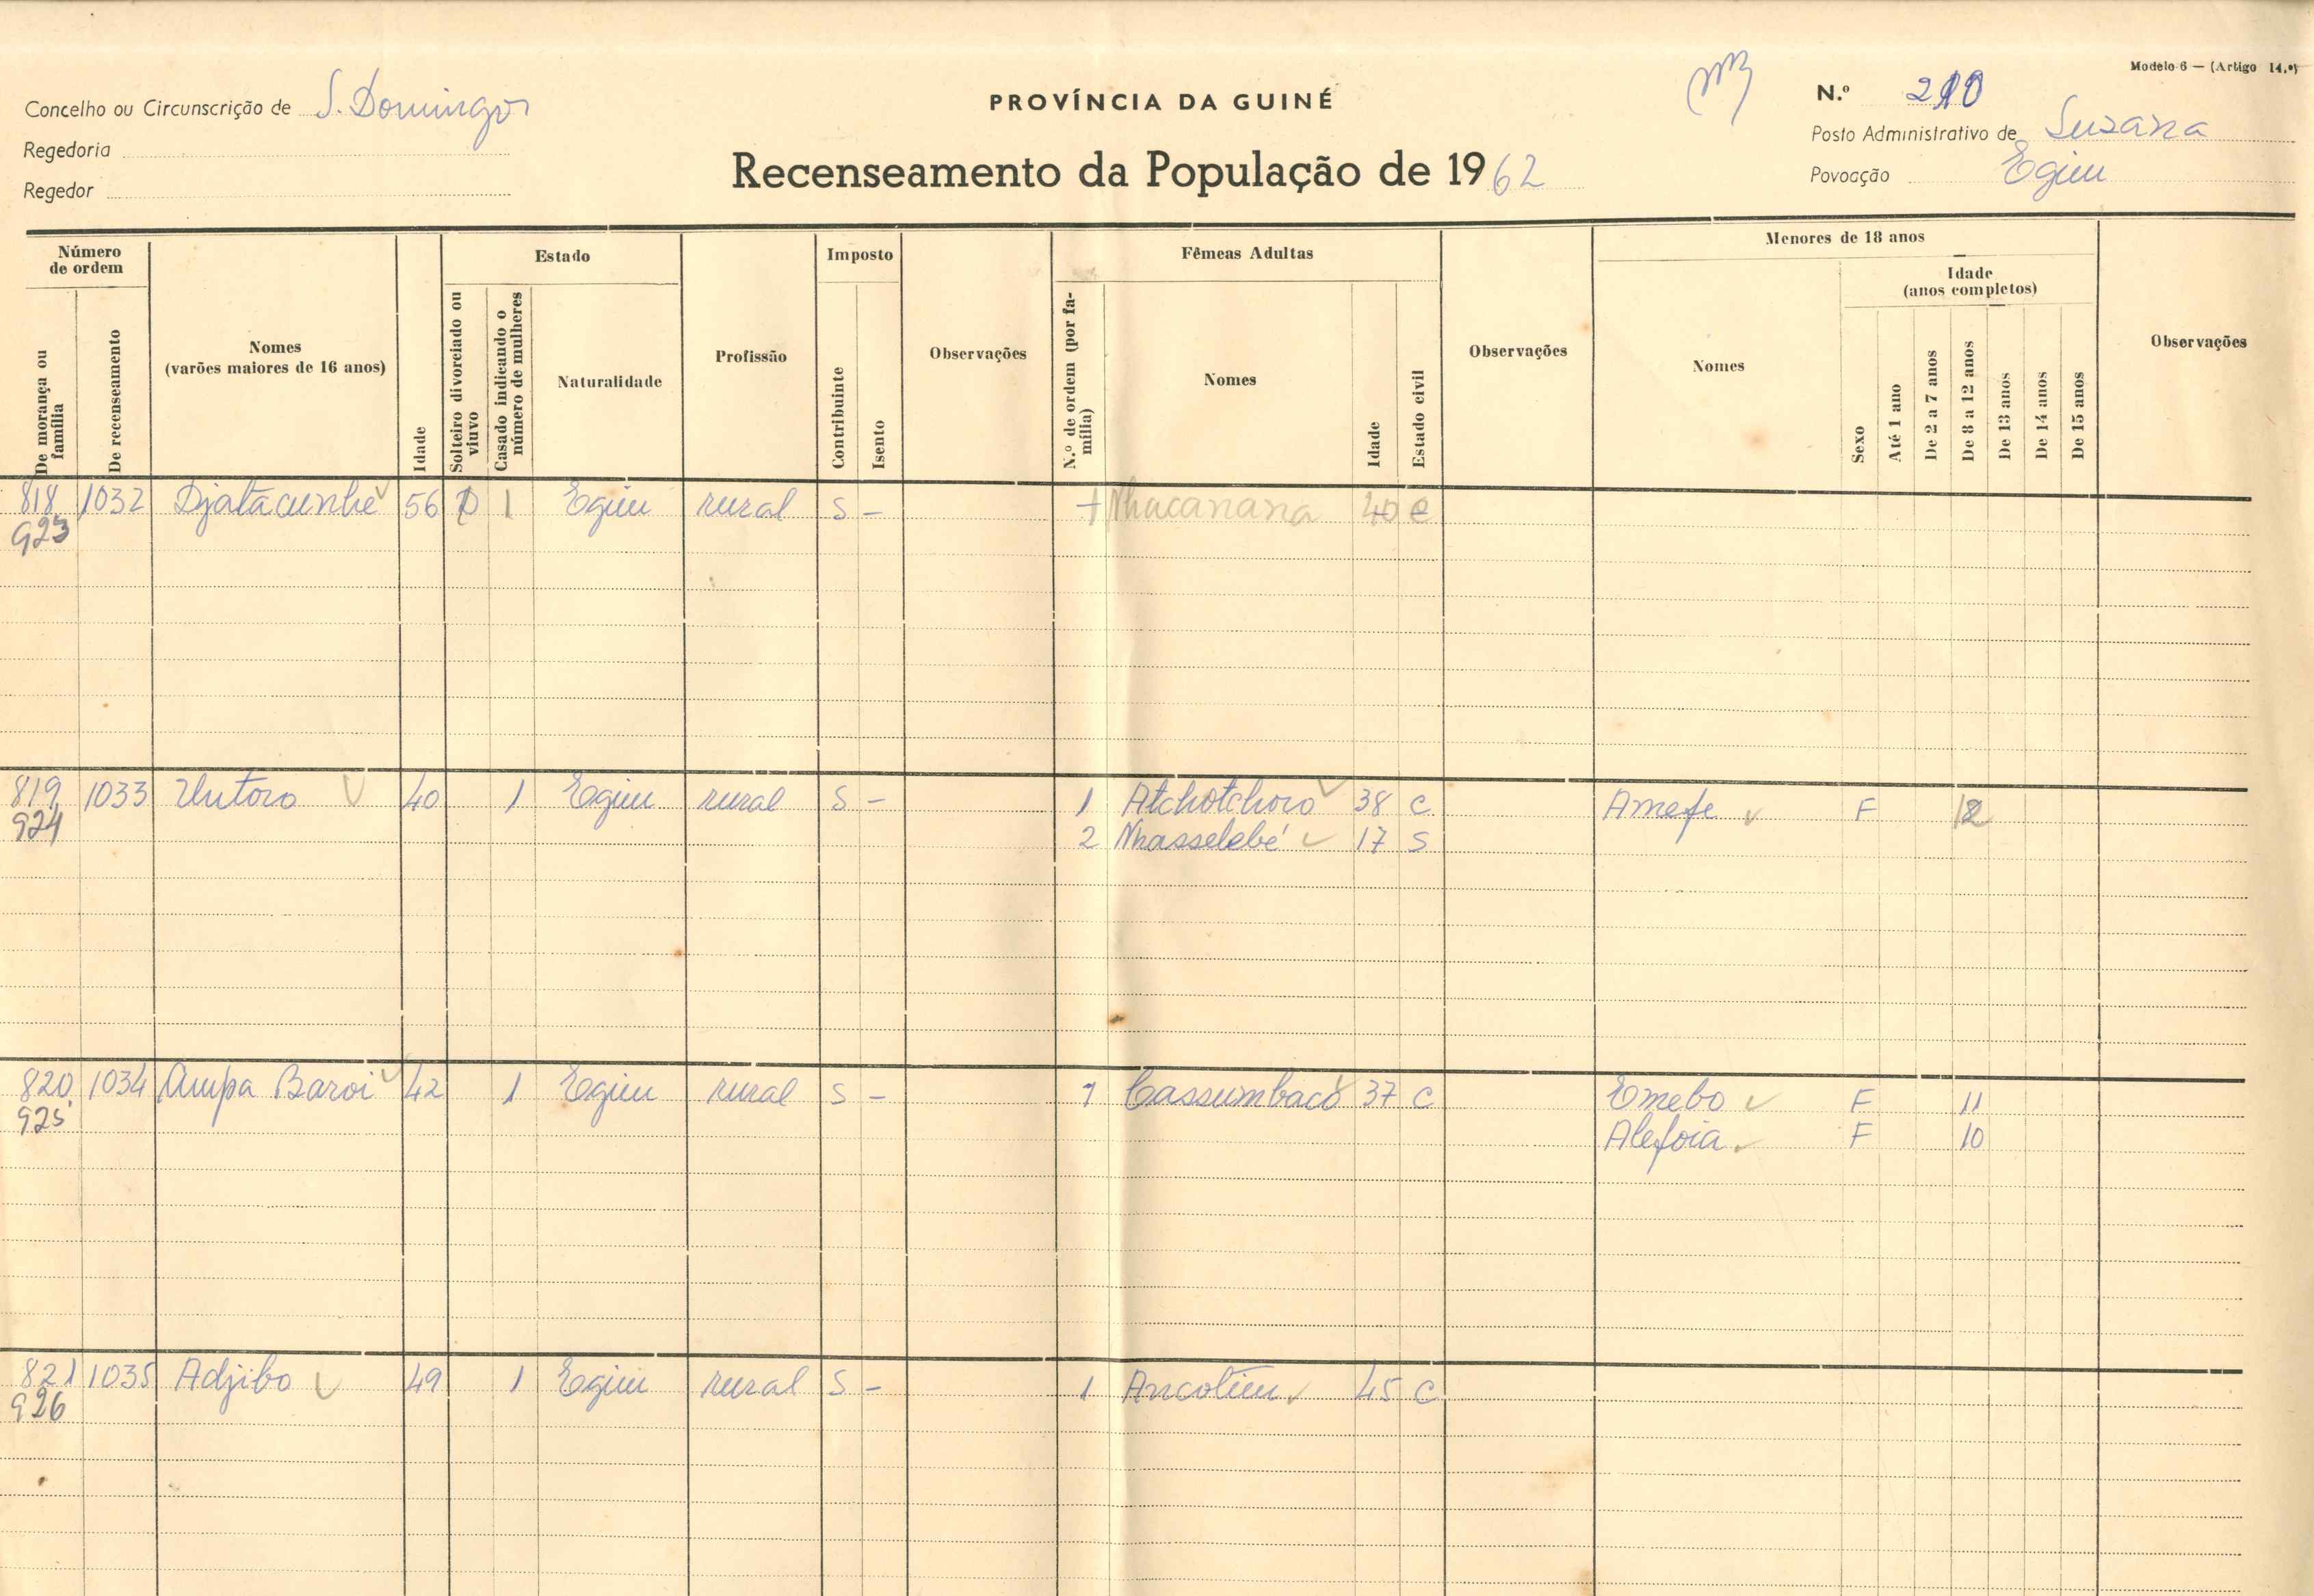 Modelo 6 — (Artigo 14.º)
Concelho ou Circunscrição de S. Domingos
PROVÍNCIA DA GUINÉ
N.º 210
Regedoria
Posto Administrativo de Suzana
Regedor
Recenseamento da População de 1962
Povoação Egim
Número de ordem
De morança ou família
De recenseamento
Nomes
(varões maiores de 16 anos)
Idade
Estado
Solteiro divorciado ou viuvo
Casado indicando o número de mulheres
Naturalidade
Profissão
Imposto
Contribuinte
Isento
Observações
Fêmeas Adultas
N.º de ordem (por família)
Nomes
Idade
Estado civil
Observações
Menores de 18 anos
Nomes
Idade
(anos completos)
Sexo
Até 1 ano
De 2 a 7 anos
De 8 a 12 anos
De 13 anos
De 14 anos
De 15 anos
Observações
818 1032 Djatacunhe 56 1 Egim rural S - Nhacanana 40 C
923
819 1033 Untoro 40 1 Egim rural S - 1 Atchotchoro 38 C Amefe F 12
924 2 Nhasselebé 17 S
820 1034 Ampa Baroi 42 1 Egim rural S - 1 Cassumbacó 37 C Emebo F 11
925 Alefoia F 10
821 1035 Adjibo 49 1 Egim rural S - 1 Ancotim 45 C
926